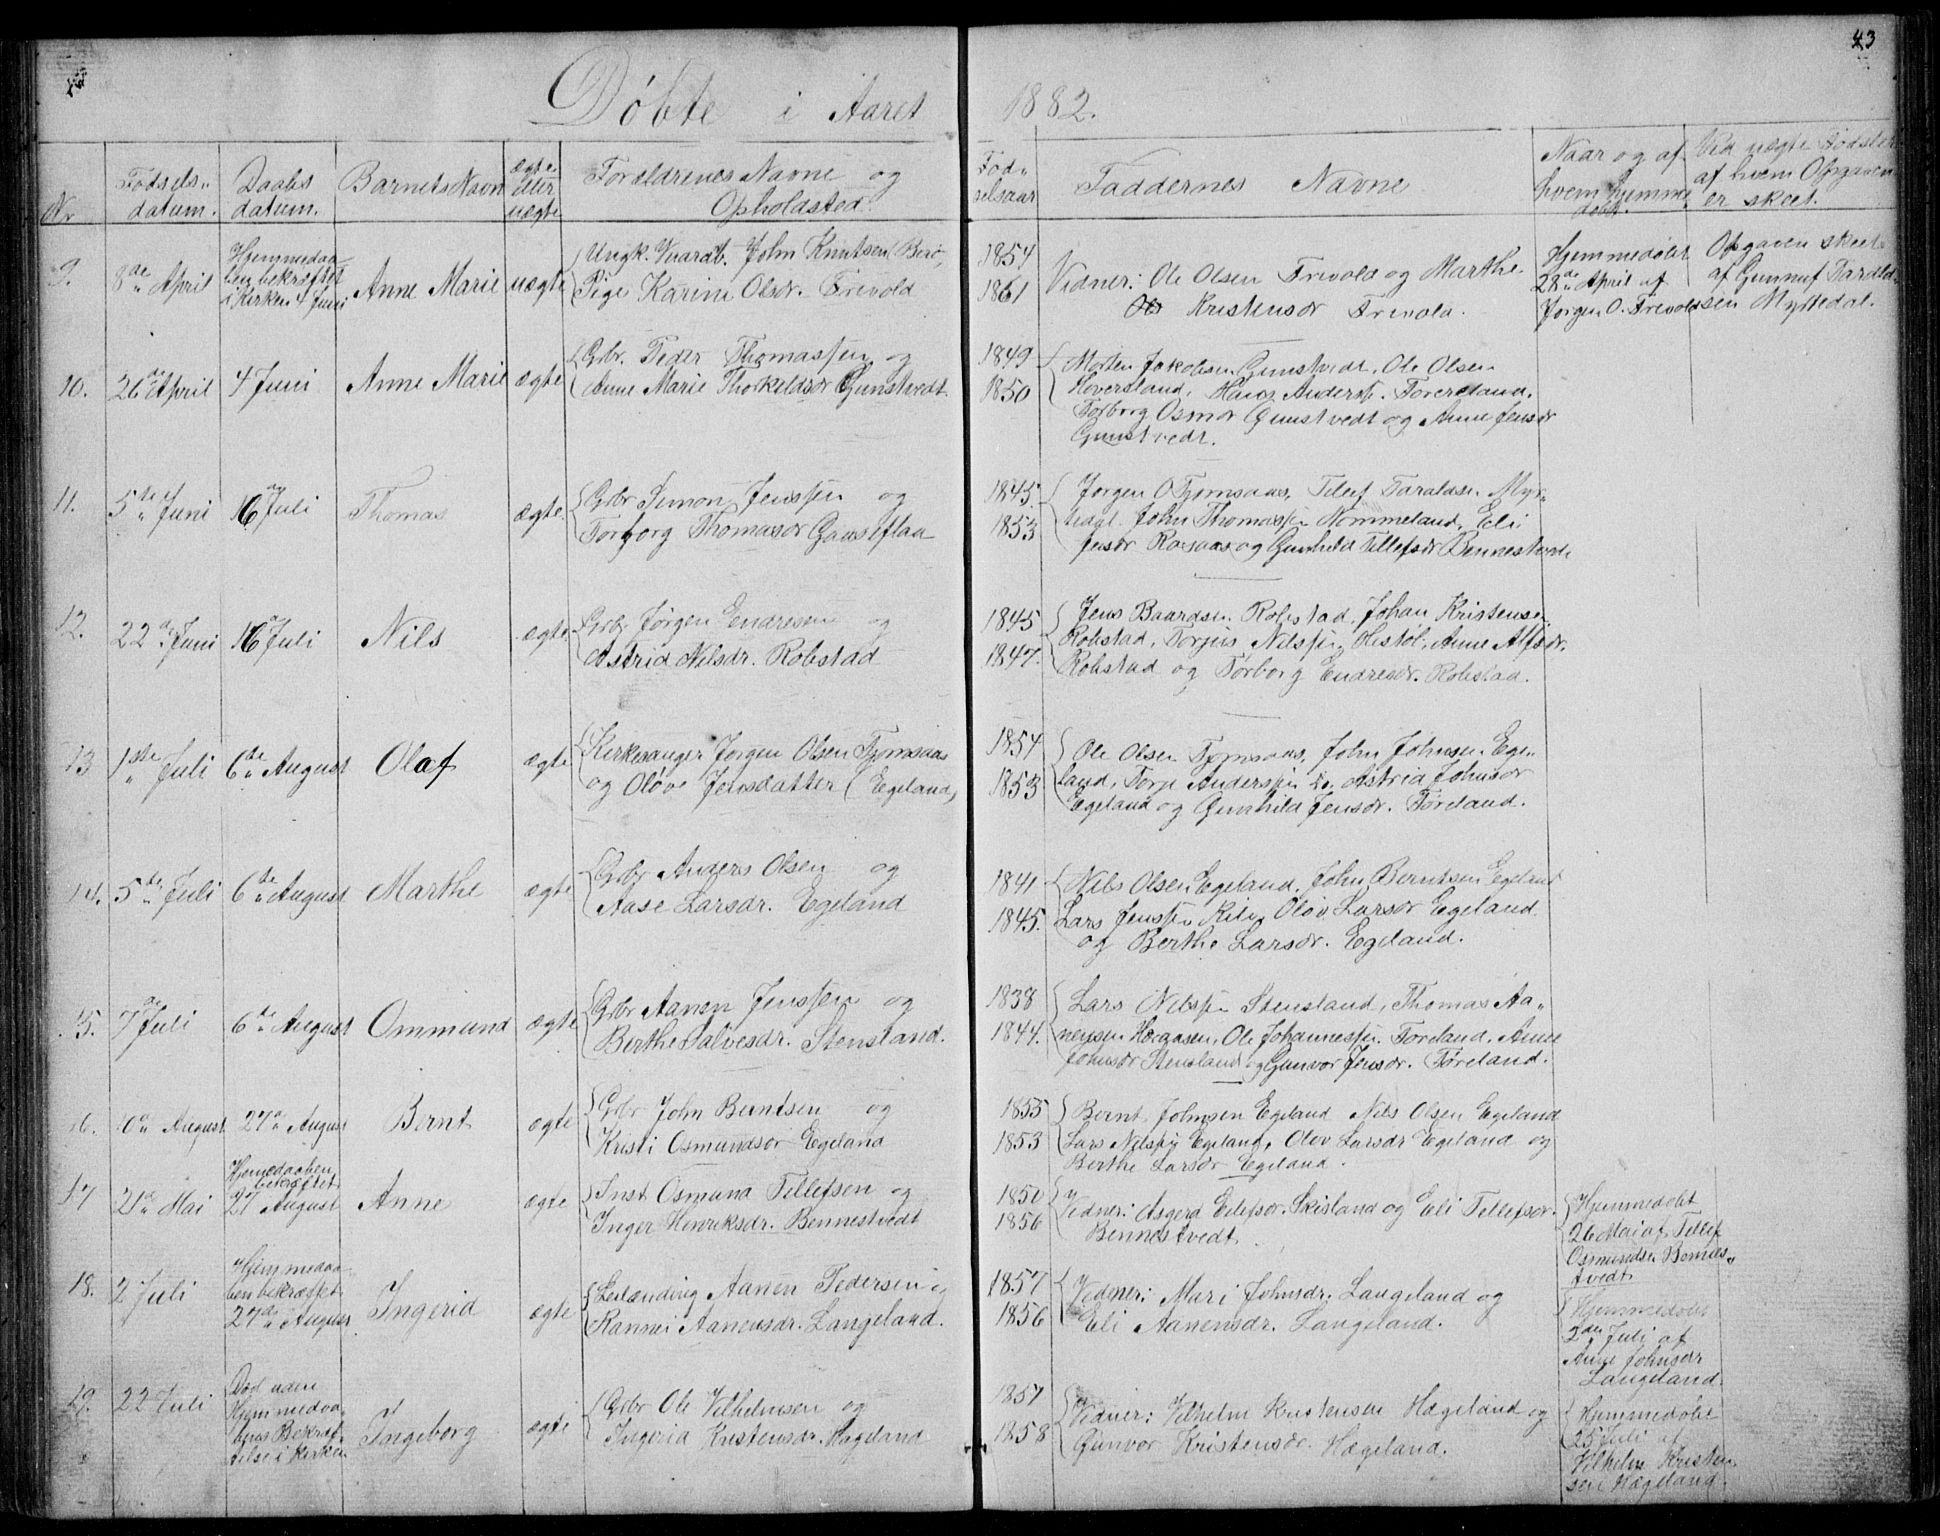 43
Døbte i Aaret 1882.
Nr
Fødsels-
datum.
Daabs
datum.
Barnets Navn
ægte
eller
uægte
Forældrenes Navne og
Opholdsted.
Fød-
selsaar
Faddernes Navne
Naar og af
hvem hjemme
døbt.
Ved uægte Fødsler
af hvem Opgaven
er skeet.
9.
8de April
Hjemmedaa-
ben bekræftet
i Kirken 4 Juni
Anne Marie
uægte
Ungk. John Knutsen
Pige Karine Olsdr. Trevold
1854
1861
Vidner: Ole Olsen Trevold og Marthe
Kristensdr Trevold.
Hjemmedøbt
28de April af
Jørgen O. Trevold
Opgaven skeet
af Gunnuf Tarald-
sen Myrtedal.
10.
26de April
4 Juni
Anne Marie
ægte
Gbr. Peder Thomassen og
Anne Marie Thorkeldsdr Gunstvedt.
1849
1850
Morten Jakobsen Gunstvedt, Ole Olsen
Hoversland, Hans Anders. Foreeland,
Torborg Osmdr Gunstvedt og Anne Jensdr
Gunstvedt.
11.
5te Juni
16de Juli
Thomas
ægte.
Gbr Simon Jenssen og
Torborg Thomasdr Gauseflaa
1845
1853
Jørgen O Tjomsaas, Tellef Taraldse. Myr-
tedal. John Thomasse Nommeland, Eli
Jensdr Rosaas og Gunhild Tellefsdr Bennestvedt
12.
22de Juni
16de Juli
Nils
ægte
Gbr Jørgen Endresen og
Astrid Nilsdr. Robstad
1845
1847.
Jens Baardsen Robstad, Johan Kristensen
Robstad, Torjus Nilssen Hestøl, Anne Alfsdr.
Robstad og Torborg Endresdr. Robstad.
13
1ste Juli
6te August
Olaf
ægte
Kirkesanger Jørgen Olsen Tjomsaas
og Oløve Jensdatter (Egeland)
1854
1853
Ole Olsen Tjomsaas, John Johnsen Ege-
land, Torje Anderssen do, Astrid Johnsdr
Egeland og Gunhild Jensdr. Føreland.
14.
5te Juli
6te August
Marthe
ægte
Gbr Anders Olsen og
Aase Larsdr. Egeland
1841
1845.
Nils Olsen Egeland, John Berntsen Egeland
Lars Jenssen Kile, Oløv Larsdr Egeland
og Berthe Larsdr. Egeland.
15.
7de Juli
6te August
Ommund
ægte
Gbr Aanen Jenssen og
Berthe Salvesdr. Stensland.
1838
1844.
Lars Nilssen Stensland, Thomas Aa-
nensen Hoaasen, Ole Johannessen Føreland, Anne
Johnsdr Stensland og Gunvor Jensdr. Føreland.
16.
10de August
27de August
Bernt
ægte
Gbr John Berntsen og
Kristi Osmundsdr Egeland
1855
1853
Bernt Johnsen Egeland Nils Olsen Egeland
Lars Nilssen Egeland, Oløv Larsdr Egeland og
Berthe Larsdr Egeland.
17
21de Mai
Hjemedaaben
bekræftet
27 August
Anne
ægte
Inst Osmund Tellefsen og
Inger Henriksdr. Bennestvedt
1850
1856
Vidner: Asgerd Eilefsdr. Skisland og Eli Tellefsdr.
Bennestvedt
Hjemmedøbt
26 Mai af Tellef
Osmundsen Bennes-
tvedt
18.
2 Juli
Hjemmedaa-
ben bekræftet
27de August
Ingerid
ægte
Leilænding Aanen Pedersen og
Rannei Aanensdr. Langeland.
1857
1856
Vidner: Mari Johnsdr. Langeland og
Eli Aanensdr. Langeland.
Hjemmedøbt
2den Juli af
Anne Johnsdr
Langeland.
19.
22 Juli
Død uden
Hjemmedaa-
bens Bekræf-
telse i Kirken
Ingeborg
ægte
Gbr Ole Vilhelmsen og
Ingerid Kristensdr. Hægeland
1857
1858
Vidner: Vilhelm Kristensen Hægeland og
Gunvor Kristensdr. Hægeland.
Hjemmedøbt
25 Juli af
Vilhelm Kristen-
sen Hægeland.